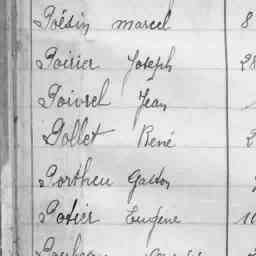 Poésin marcel 8
Poirier Joseph 28
Poivrel Jean
Pollet René 2
Portheu Gaston
Potier Eugène 10